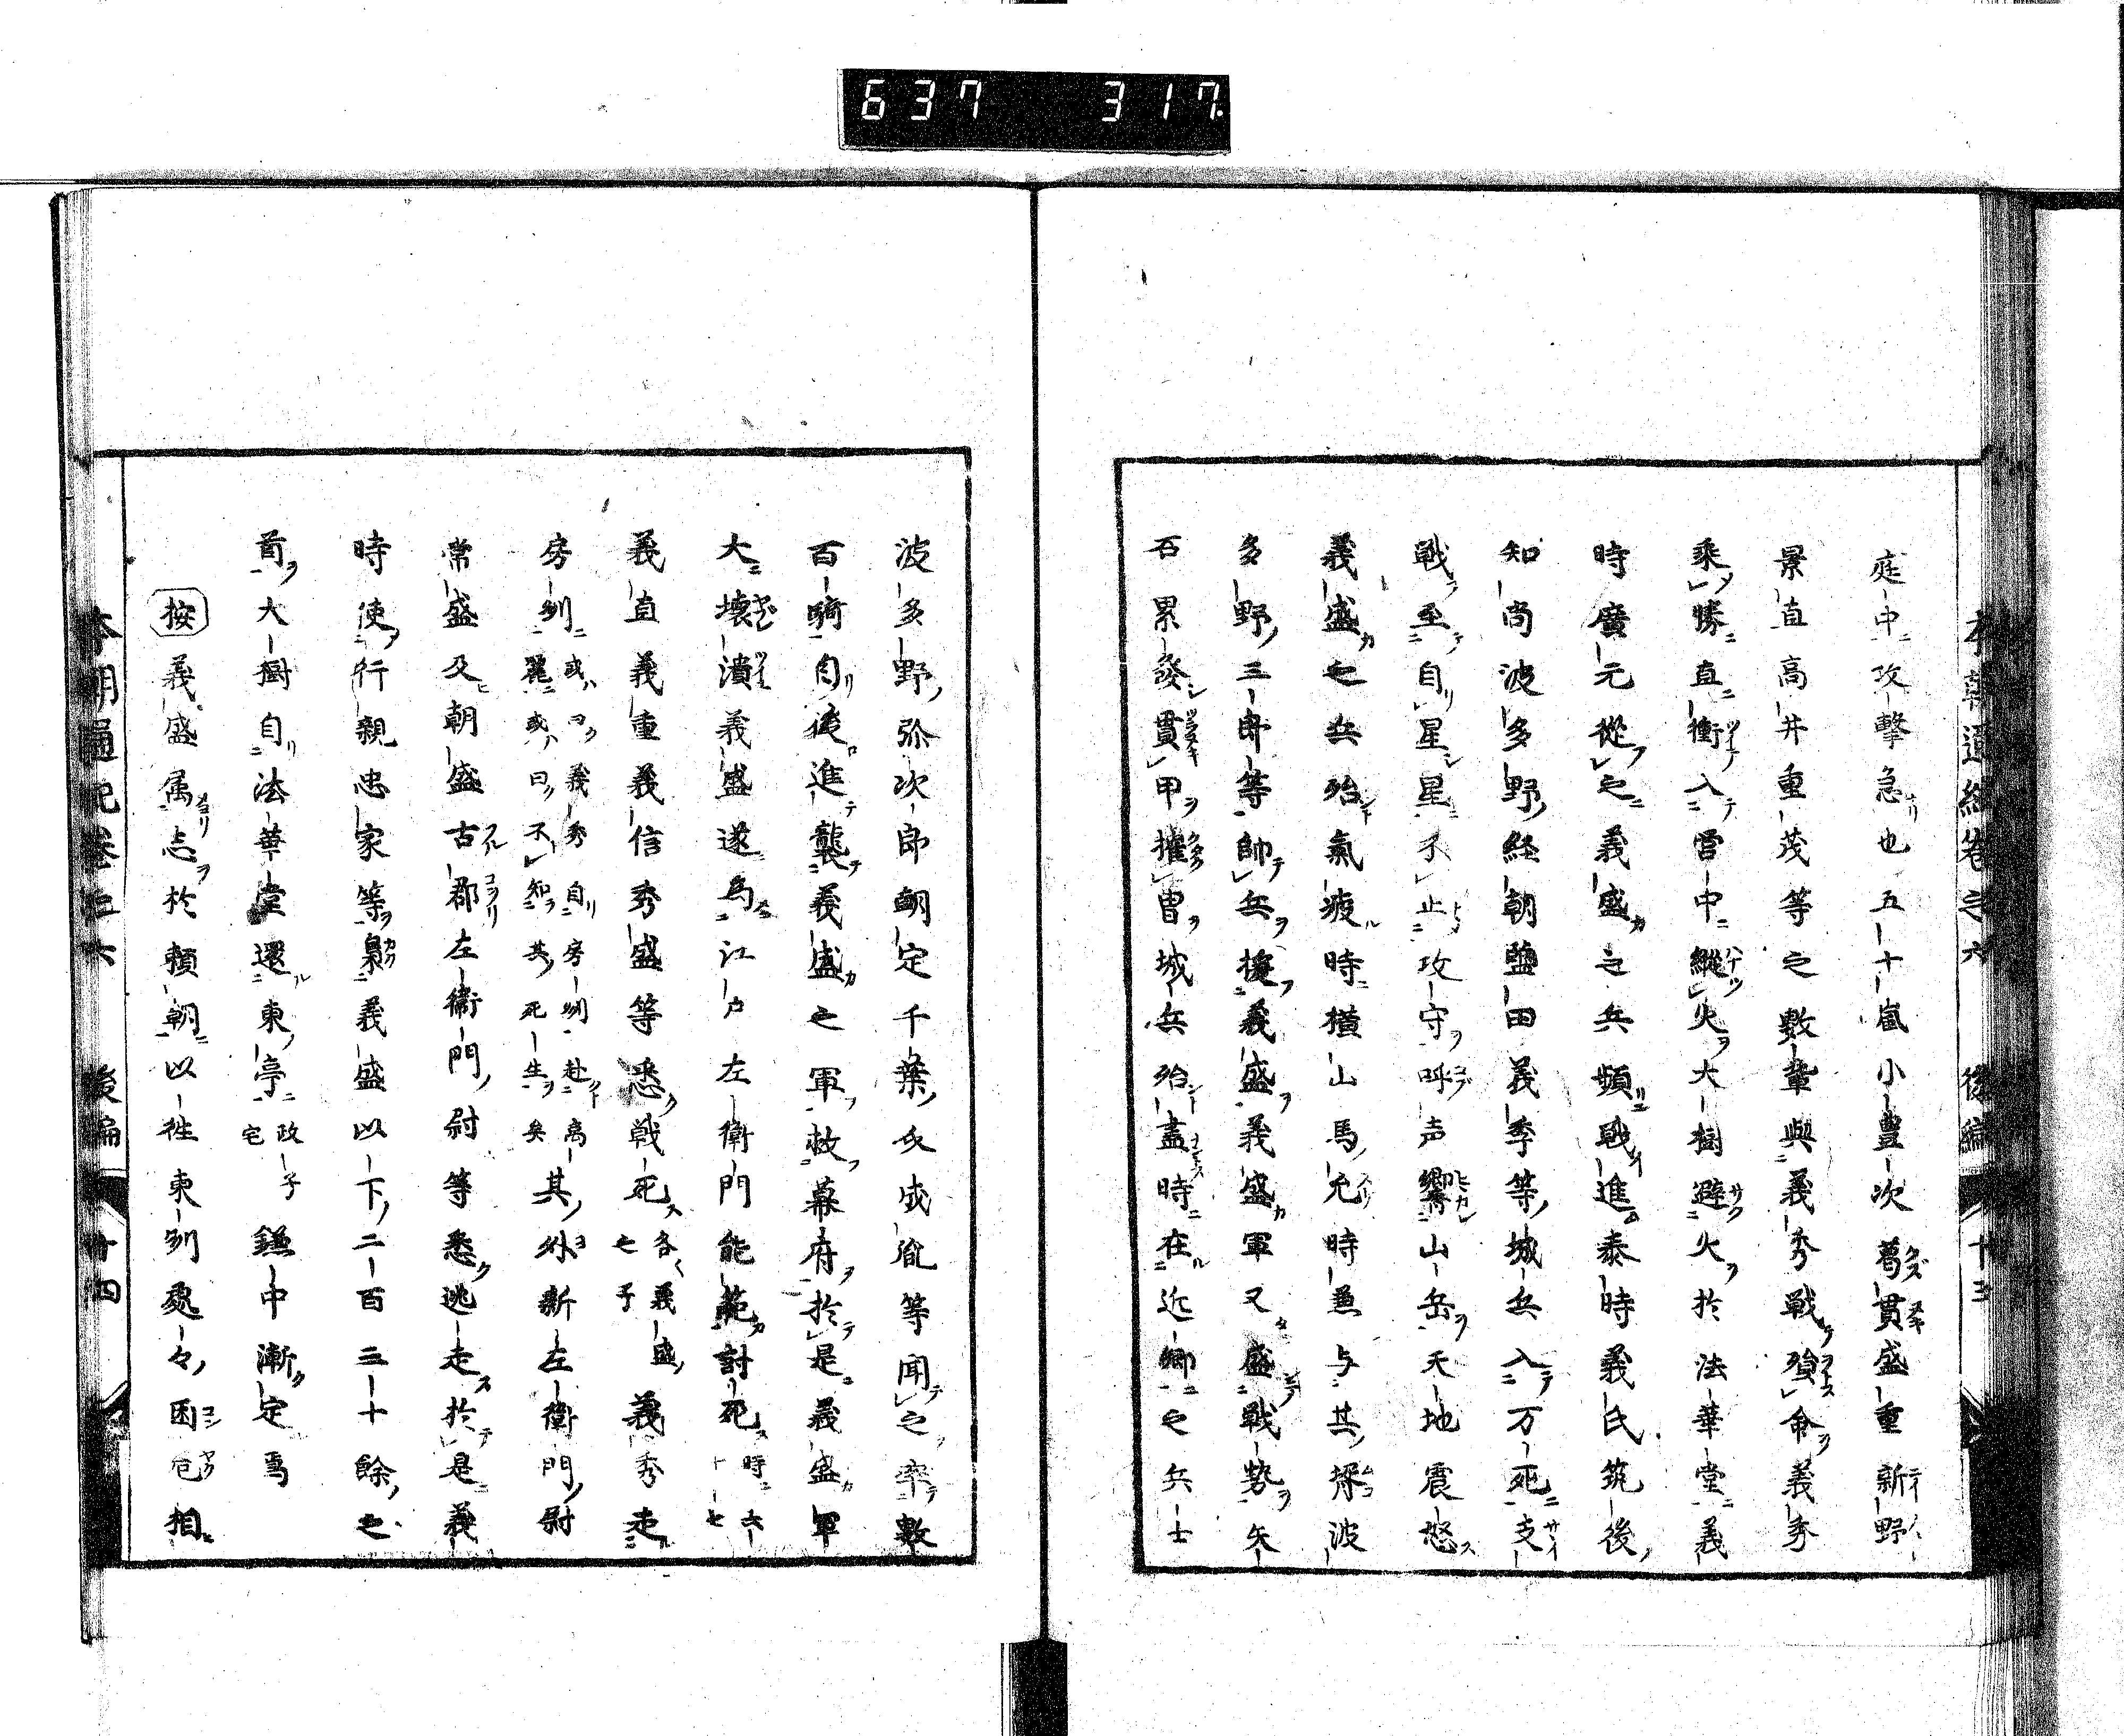 637 317
本朝通紀巻之六 後編 十三
庭中攻擊急也五十嵐小豊次葛貫盛重新野
景直高井重茂等之數輩與義秀戰殞命義秀
乘勝直衝入営中縱火大樹避火於法華堂義
時廣元從之義盛之兵頻戰進泰時義氏筑後
知尚波多野経朝鹽田義季等城兵入万死支
戰至自星星不止攻守呼声響山岳天地震怒
義盛之兵殆氣疲時横山馬允時兼与其壻波
多野三郎等帥兵援義盛義盛軍又盛戰勢矢
石累發貫甲摧冑城兵殆盡時在近郷之兵士
波多野弥次郎朝定千葉介成胤等聞之率數
百騎自後進襲義盛之軍救幕府於是義盛軍
大壊潰義盛遂為江戸左衛門能範討死時六十七
義直義重義信秀盛等悉戦死各義盛之子義秀走
房州或曰義秀自房州赴高麗或曰不知其死生矣其外新左衛門尉
常盛及朝盛古郡左衛門尉等悉逃走於是義
時使行親忠家等梟義盛以下二百三十餘之
首大樹自法華堂還東亭政子宅鎌中漸定焉
按義盛属志於頼朝以徃東州處々困危相
本朝通紀巻之六 後編 十四